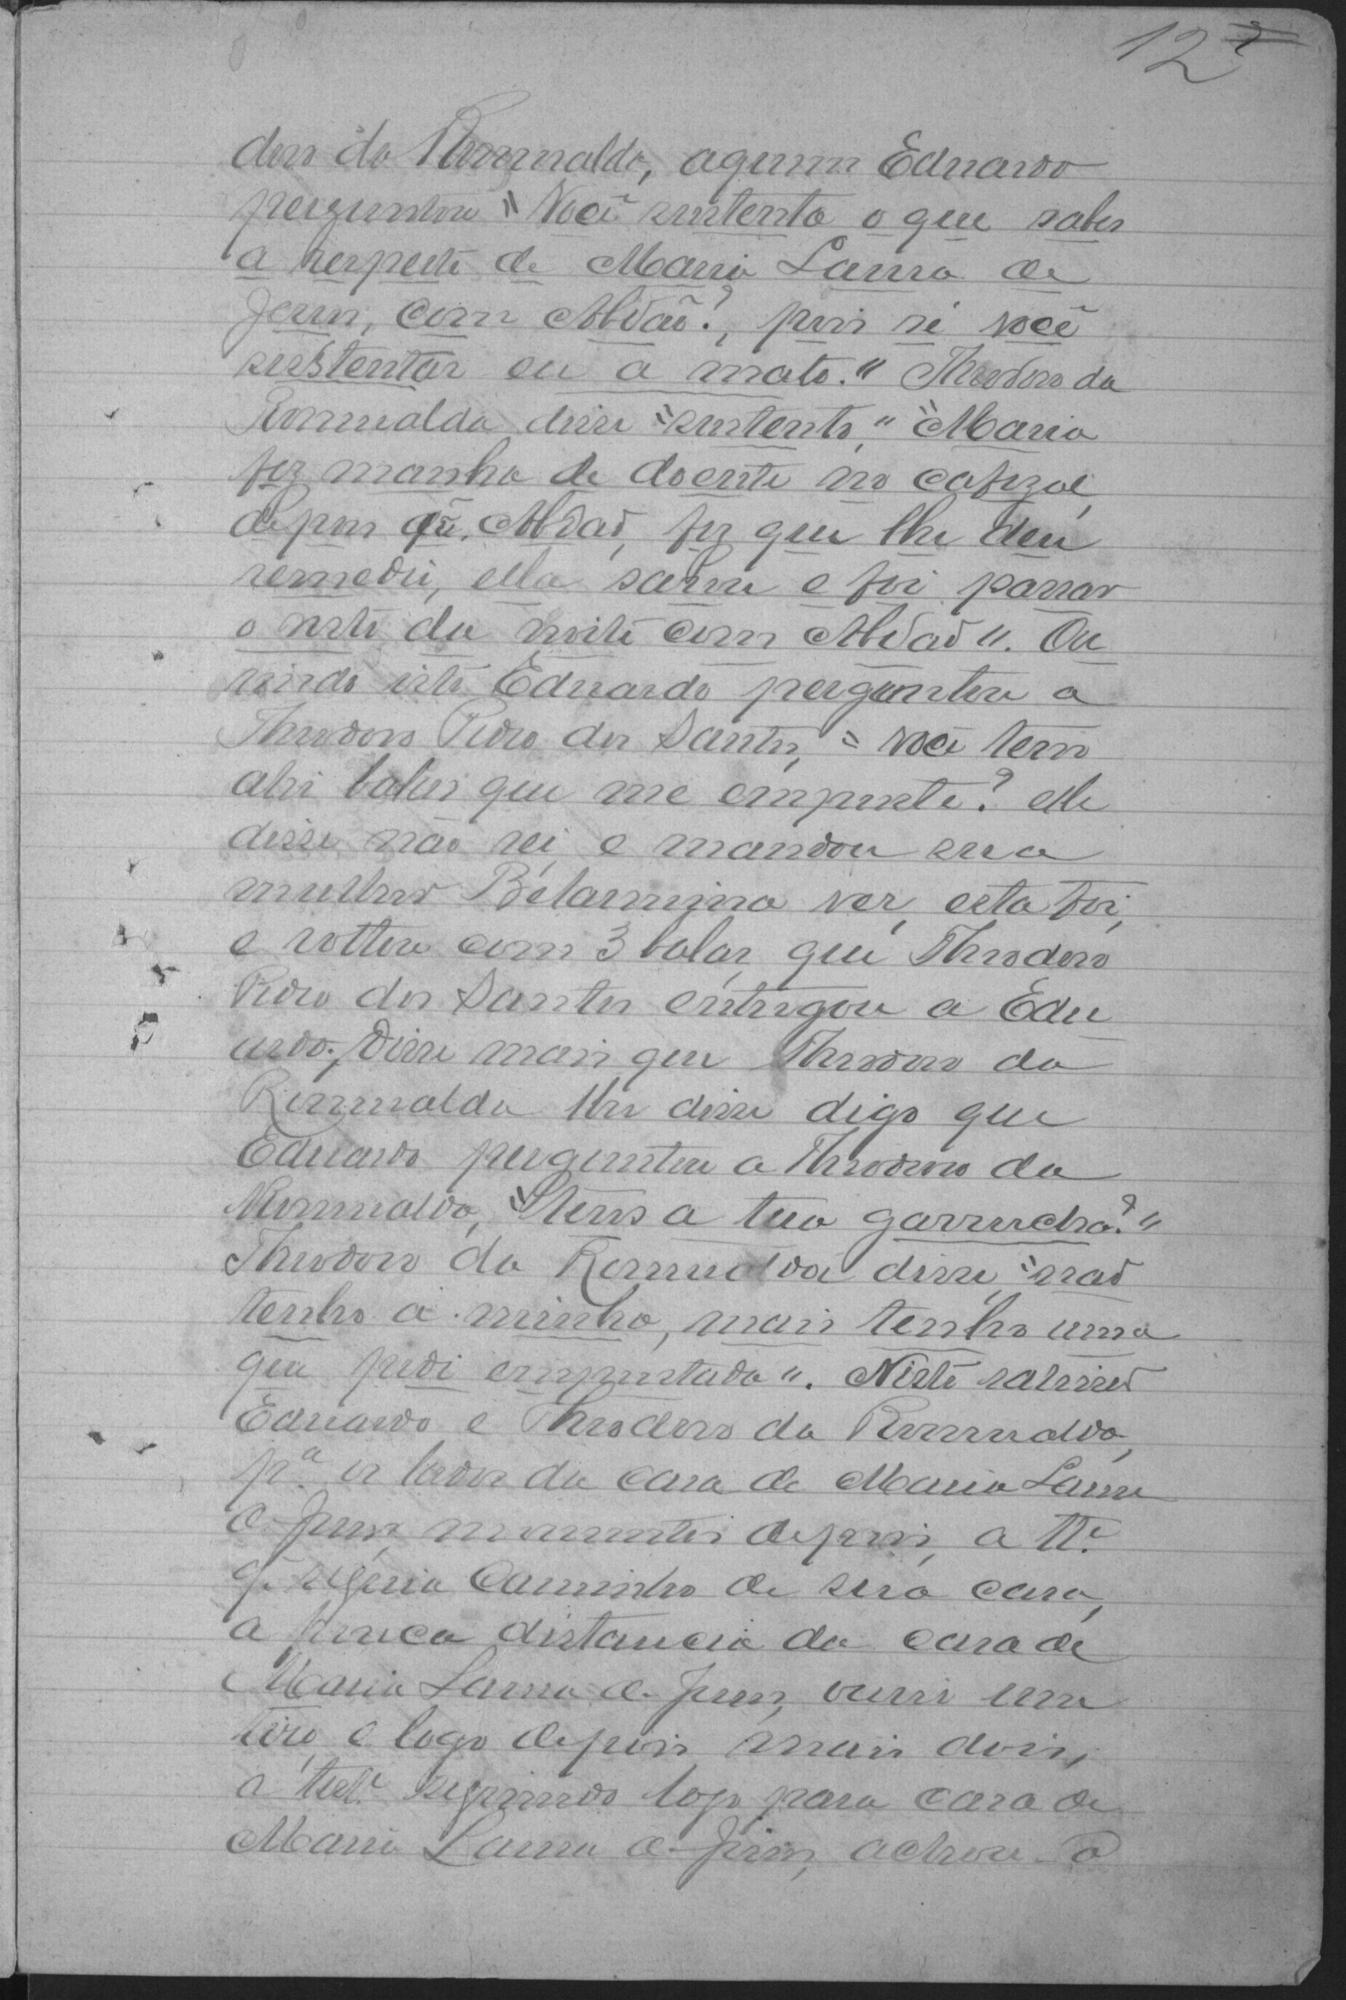 12
doro da Romualda, a quem Eduardo
perguntou "Você sustenta o que sabes
a respeito de Maria Laura de
Jesus, com Abdão?, pois si você
sustentar eu a mato." Theodoro da
Romualda disse "sustento," "Maria
fez manha de doente no cafezal,
depois qe. Abdão, fez que lhe deu
remedio, ella sahiu e foi passar
o resto da noite com Abdão". Ou
vindo isto Eduardo perguntou a
Theodoro Pedro dos Santos, "você tem
ahi balas que me empreste? elle
disse não sei, e mandou sua
mulher Belarmina ver, esta foi,
e voltou com 3 balas, que Theodoro
Pedro dos Santos entregou a Edu
ardo. Disse mais que Theodoro da
Romualda lhe disse digo que
Eduardo perguntou a Theodoro da
Romualda, "tens a tua garrucha?"
Theodoro da Romualda disse, "não
tenho a minha, mais tenho uma
que pedi emprestada". Nisto sahirão
Eduardo e Theodoro da Romualda,
pª os lados da casa de Maria Laura
de Jesus, momentos depois, a tte.
qe seguia caminho de sua casa,
a pouca distancia da casa de
Maria Laura de Jesus, ouviu um
tiro, e logo depois mais dois,
a teste. seguindo logo para casa de
Maria Laura de Jesus, achou a